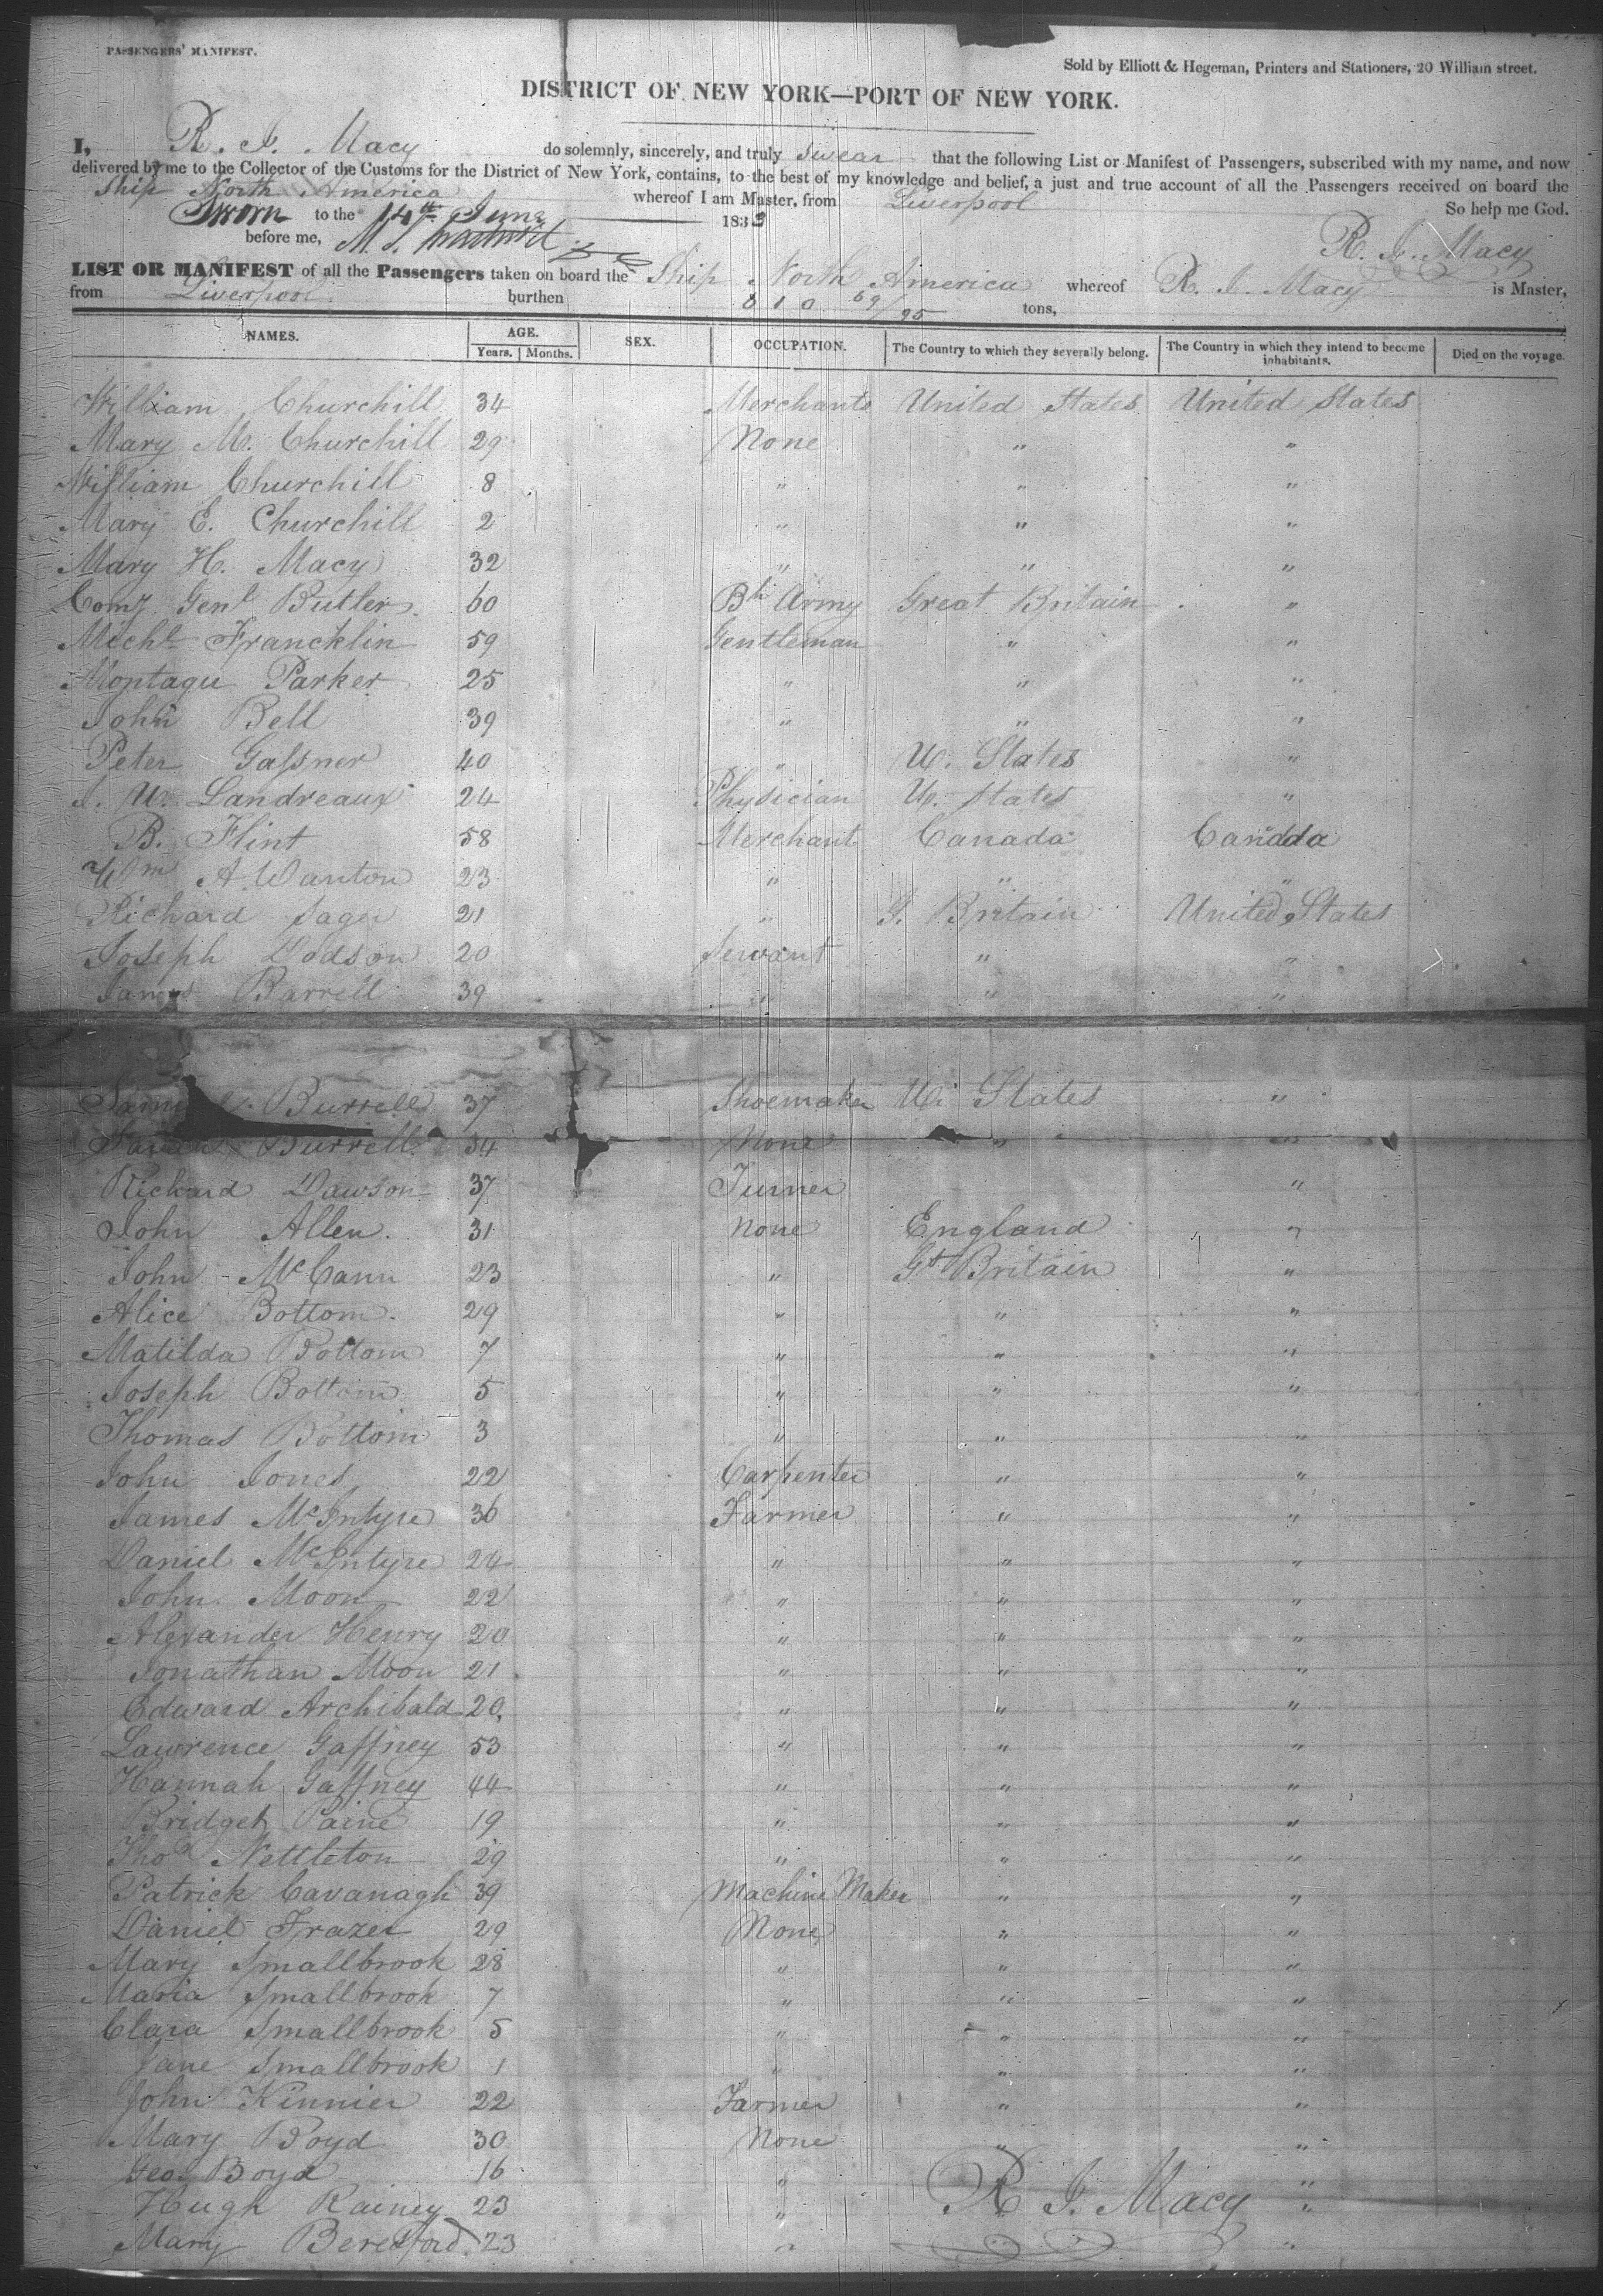 PASSENGERS' MANIFEST.
Sold by Elliott & Hegeman, Printers and Stationers, 20 William street.
DISTRICT OF NEW YORK—PORT OF NEW YORK.
I, R. J. Macy do solemnly, sincerely, and truly swear that the following List or Manifest of Passengers, subscribed with my name, and now
delivered by me to the Collector of the Customs for the District of New York, contains, to the best of my knowledge and belief, a just and true account of all the Passengers received on board the
Ship North America whereof I am Master, from Liverpool So help me God.
Sworn to the 14th June 1833
before me, M. S. R. J. Macy
LIST OR MANIFEST of all the Passengers taken on board the Ship North America whereof R. J. Macy is Master,
from Liverpool burthen 610 69/95 tons,
NAMES. AGE. SEX. OCCUPATION. The Country to which they severally belong. The Country in which they intend to become inhabitants. Died on the voyage.
Years. Months.
William Churchill 34 Merchants United States United States
Mary M. Churchill 29 None " "
William Churchill 8 " " "
Mary E. Churchill 2 " " "
Mary H. Macy 32 " " "
Comy Genl Butler 60 Bh Army Great Britain "
Michl Francklin 59 Gentleman " "
Montagu Parker 25 " " "
John Bell 39 " " "
Peter Gassner 40 " U. States "
J. U. Landreaux 24 Physician U. States "
B. Flint 58 Merchant Canada Canada
Wm A Wanton 23 " " "
Richard Sager 21 " G. Britain United States
Joseph Dodson 20 Servant " "
James Barrell 39 " " "
Samuel Burrell 37 Shoemaker U. States "
Burrell 34 None " "
Richard Dawson 37 Turner "
John Allen 31 None England "
John McCann 23 " Gt Britain "
Alice Bottom 29 " " "
Matilda Bottom 7 " " "
Joseph Bottom 5 " " "
Thomas Bottom 3 " " "
John Jones 22 Carpenter " "
James McIntyre 36 Farmer " "
Daniel McIntyre 24 " " "
John Moon 22 " " "
Alexander Henry 20 " " "
Jonathan Moon 21 " " "
Edward Archibald 20 " " "
Lawrence Gaffney 53 " " "
Hannah Gaffney 44 " " "
Bridget Paine 19 " " "
Thos Nettleton 29 " " "
Patrick Cavanagh 39 Machine Maker " "
Daniel Frazer 29 None " "
Mary Smallbrook 28 " " "
Maria Smallbrook 7 " " "
Clara Smallbrook 5 " " "
Jane Smallbrook 1 " " "
John Kinnier 22 Farmer " "
Mary Boyd 30 None " "
Geo. Boyd 16 " "
Hugh Rainey 23 " R. J. Macy "
Mary Beresford 23 " "